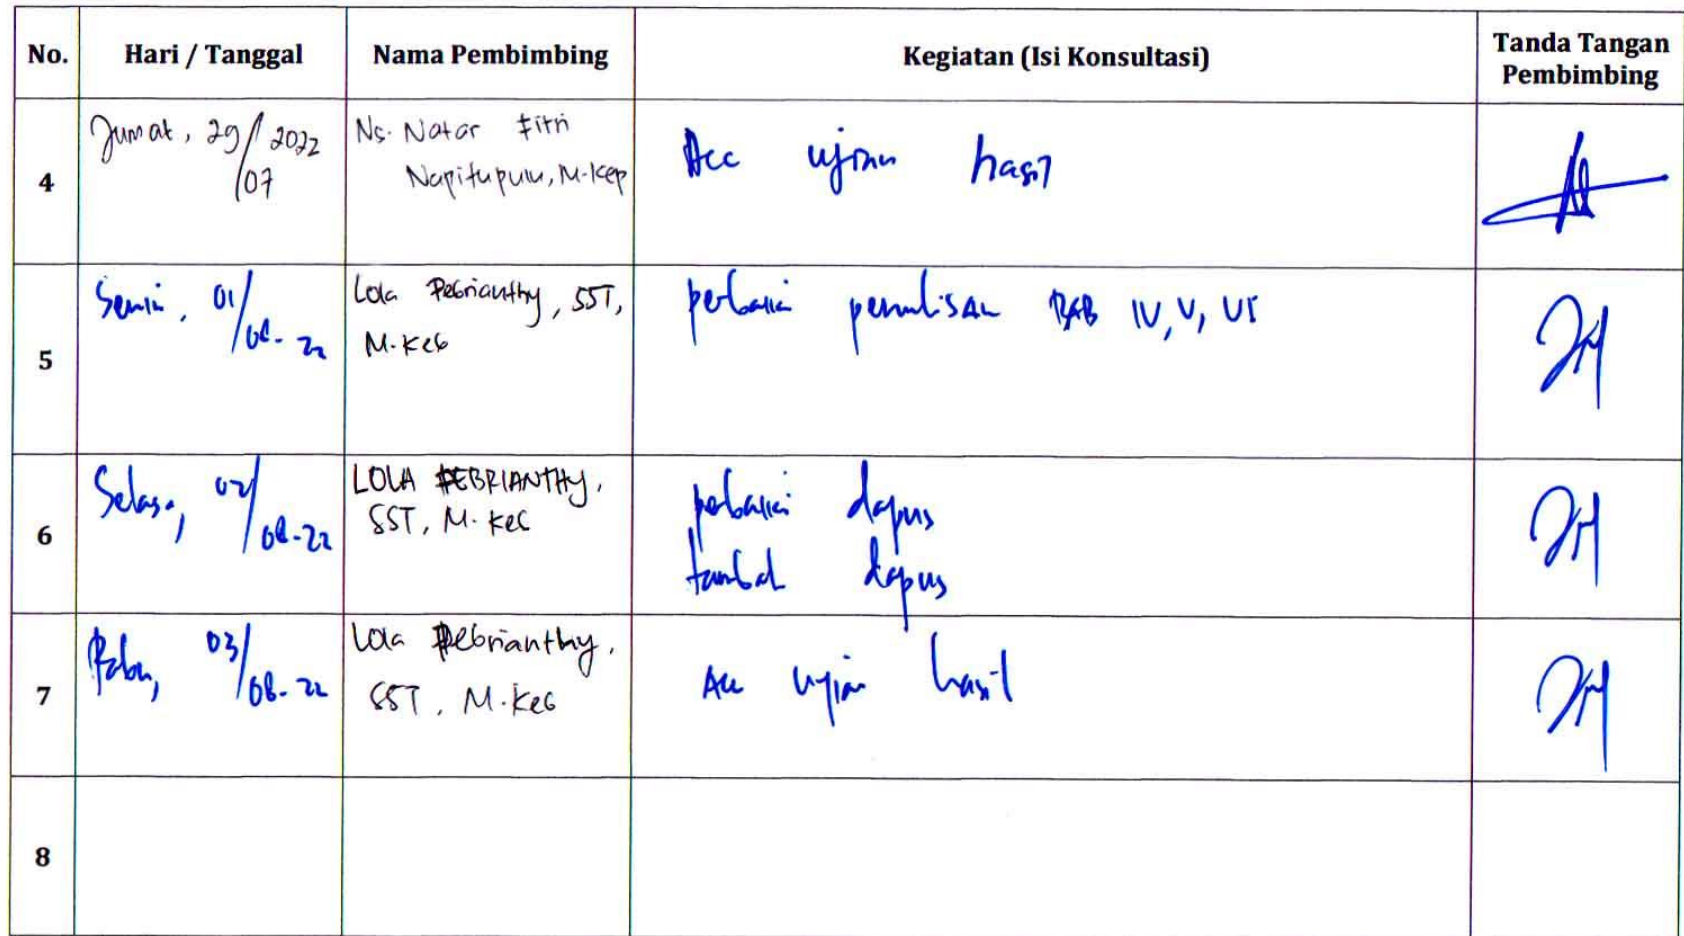 No. Hari / Tanggal Nama Pembimbing Kegiatan (Isi Konsultasi) Tanda Tangan Pembimbing
4
Jumat, 29/07 2022
Ns. Natar Fitri
Napitupulu, M.Kep
Acc ujian hasil
5
Senin, 01/08-22
Lola Pebrianthy, SST,
M.Keb
perbaiki penulisan BAB IV, V, VI
6
Selasa, 02/08-22
LOLA PEBRIANTHY,
SST, M.Keb
perbaiki dapus
tambah dapus
7
Rabu, 03/08-22
Lola Pebrianthy,
SST, M.Keb
Acc ujian hasil
8